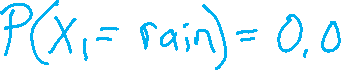 P(X₁ = rain) = 0.0